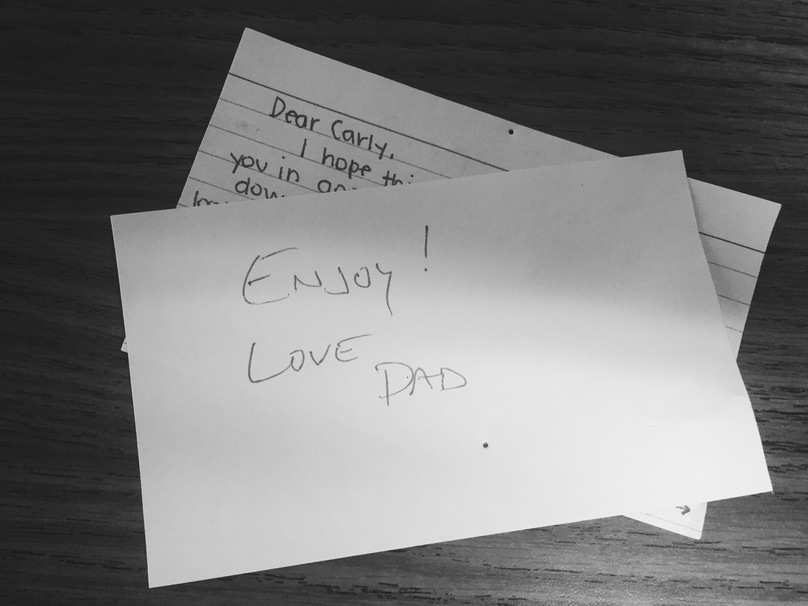 Dear Carly,
I hope
you in
ENJOY!
LOVE
DAD